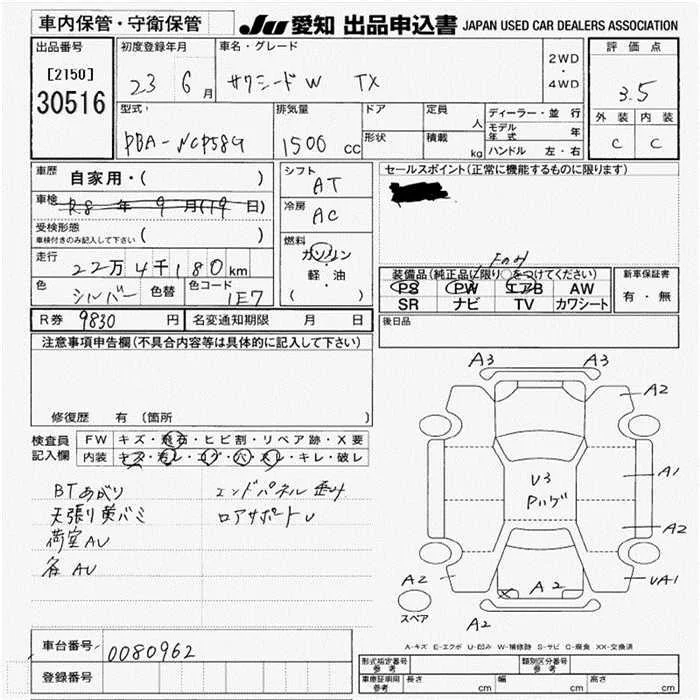 車内保管・守衛保管
JU 愛知 出品申込書 JAPAN USED CAR DEALERS ASSOCIATION
出品番号
[2150]
30516
初度登録年月
23 6月
車名・グレード
サクシードW TX
2WD
・
4WD
評価点
3.5
外装 内装
C C
型式
DBA-NCP58G
排気量
1500 cc
ドア
形状
定員 人
積載 kg
ディーラー・並行
モデル年式 年
ハンドル 左・右
車歴
自家用・( )
車検
R8年9月(19日)
受検形態
車検付きのみ記入して下さい ( )
走行
22万4千180km
色
シルバー
色替
色コード
1E7
シフト
AT
冷房
AC
燃料
ガソリン
・
軽・油
( )
セールスポイント(正常に機能するものに限ります)
Fのみ
装備品(純正品に限り○をつけてください)
PS PW エアB AW
SR ナビ TV カワシート
新車保証書
有・無
R券 9830 円
名変通知期限 月 日
後日品
注意事項申告欄(不具合内容等は具体的に記入して下さい)
修復歴 有 〔箇所
検査員
記入欄
FW キズ・飛石・ヒビ割・リペア跡・X要
内装 キズ・汚レ・コゲ・穴・スレ・キレ・破レ
BTあがり
エンドパネル歪み
天張り黄バミ
ロアサポートU
荷室AU
各AU
A3 A3
A2
A1
U3
Pハゲ
A2
A2
X A2
UA1
スペア
A2
A-キズ E-エクボ U-凹み W-補修跡 S-サビ C-腐食 XX-交換済
車台番号
0080962
登録番号
形式指定番号
参考
類別区分番号
参考
車庫証明用
参考
長さ cm 幅 cm 高さ cm